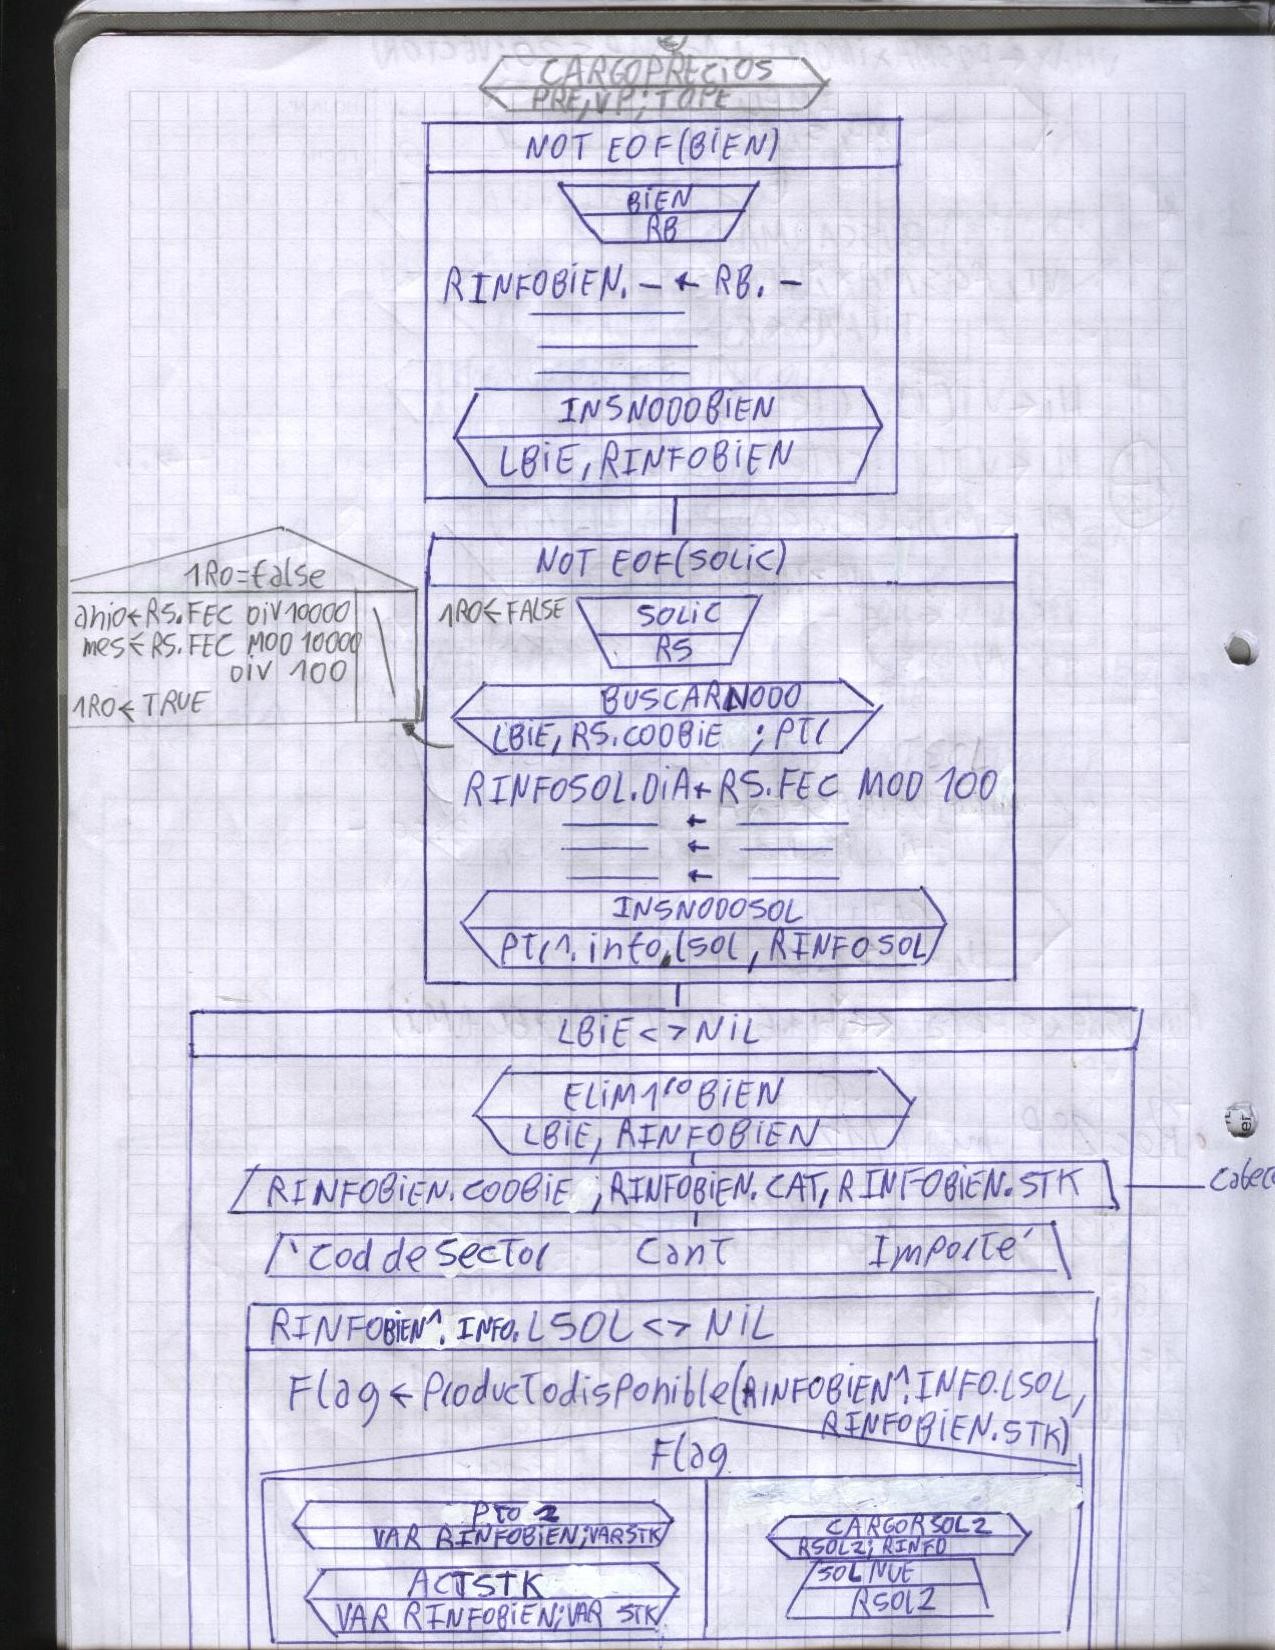 CARGOPRECIOS
PRE, VP; TOPE
NOT EOF(BIEN)
BIEN
RB
RINFOBIEN. — ← RB. —
INSNODOBIEN
LBIE, RINFOBIEN
NOT EOF(SOLIC)
1RO=False
1RO←FALSE
SOLIC
RS
anio←RS.FEC DIV 10000
mes←RS.FEC MOD 10000
DIV 100
1RO←TRUE
BUSCARNODO
LBIE, RS.CODBIE ; PTR
RINFOSOL.DIA← RS.FEC MOD 100
←
←
←
INSNODOSOL
PTR^.info.lsol, RINFOSOL
LBIE <> NIL
ELIM1roBIEN
LBIE, RINFOBIEN
RINFOBIEN.CODBIE, RINFOBIEN.CAT, RINFOBIEN.STK
Cabec
'Cod de Sector Cant Importe'
RINFOBIEN^.INFO.LSOL <> NIL
Flag ← Productodisponible(RINFOBIEN^.INFO.LSOL,
RINFOBIEN.STK)
Flag
PTO 2
VAR RINFOBIEN; VAR STK
ACTSTK
VAR RINFOBIEN; VAR STK
CARGORSOL2
RSOL2; RINFO
SOLNUE
RSOL2